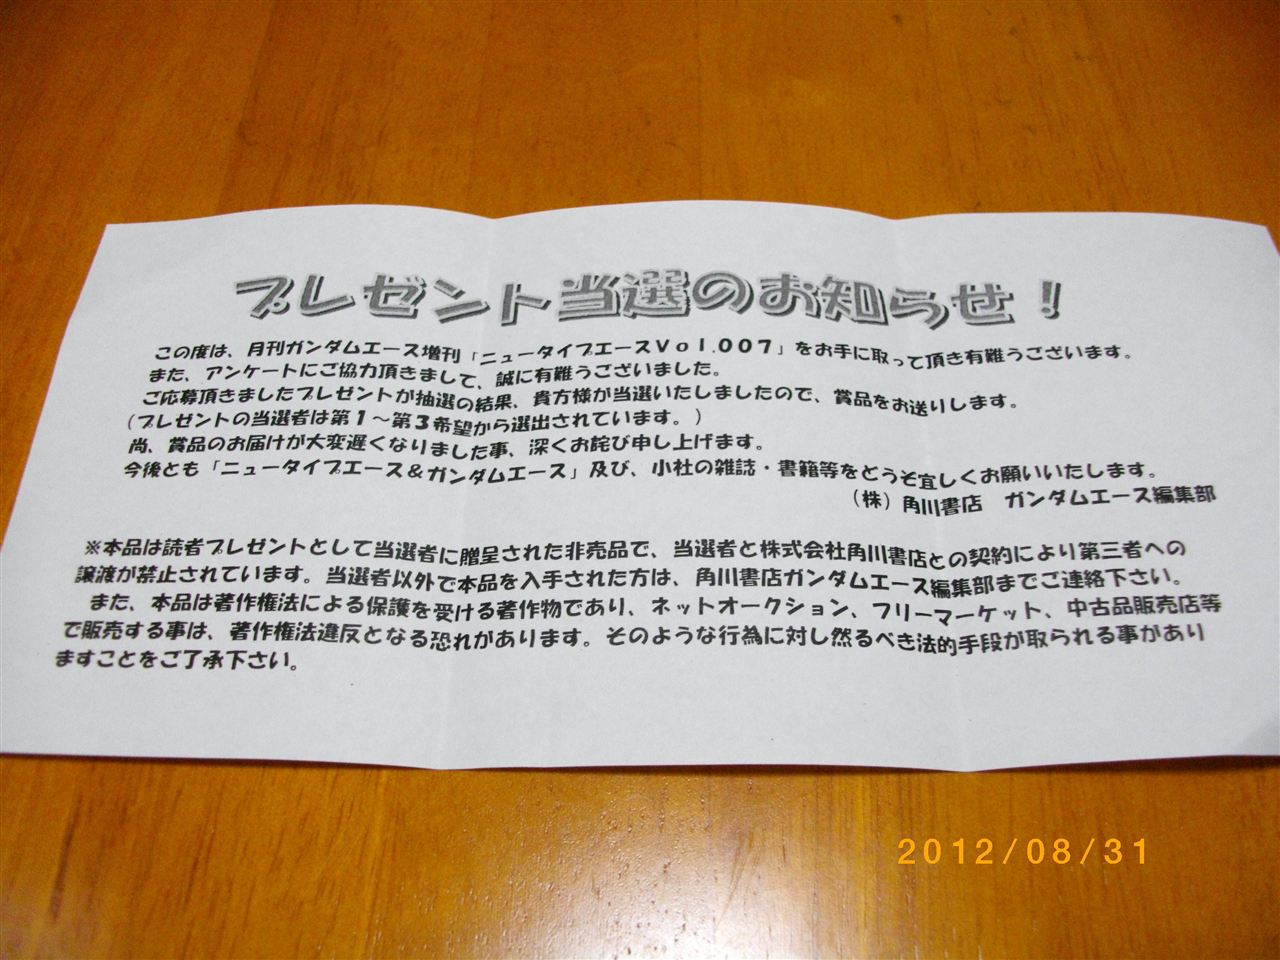 プレゼント当選のお知らせ！
この度は、月刊ガンダムエース増刊「ニュータイプエースＶｏｌ.００７」をお手に取って頂き有難うございます。
また、アンケートにご協力頂きまして、誠に有難うございました。
ご応募頂きましたプレゼントが抽選の結果、貴方様が当選いたしましたので、賞品をお送りします。
（プレゼントの当選者は第１～第３希望から選出されています。）
尚、賞品のお届けが大変遅くなりました事、深くお詫び申し上げます。
今後とも「ニュータイプエース＆ガンダムエース」及び、小社の雑誌・書籍等をどうぞ宜しくお願いいたします。
（株）角川書店　ガンダムエース編集部
※本品は読者プレゼントとして当選者に贈呈された非売品で、当選者と株式会社角川書店との契約により第三者への
譲渡が禁止されています。当選者以外で本品を入手された方は、角川書店ガンダムエース編集部までご連絡下さい。
また、本品は著作権法による保護を受ける著作物であり、ネットオークション、フリーマーケット、中古品販売店等
で販売する事は、著作権法違反となる恐れがあります。そのような行為に対し然るべき法的手段が取られる事があり
ますことをご了承下さい。
2012/08/31